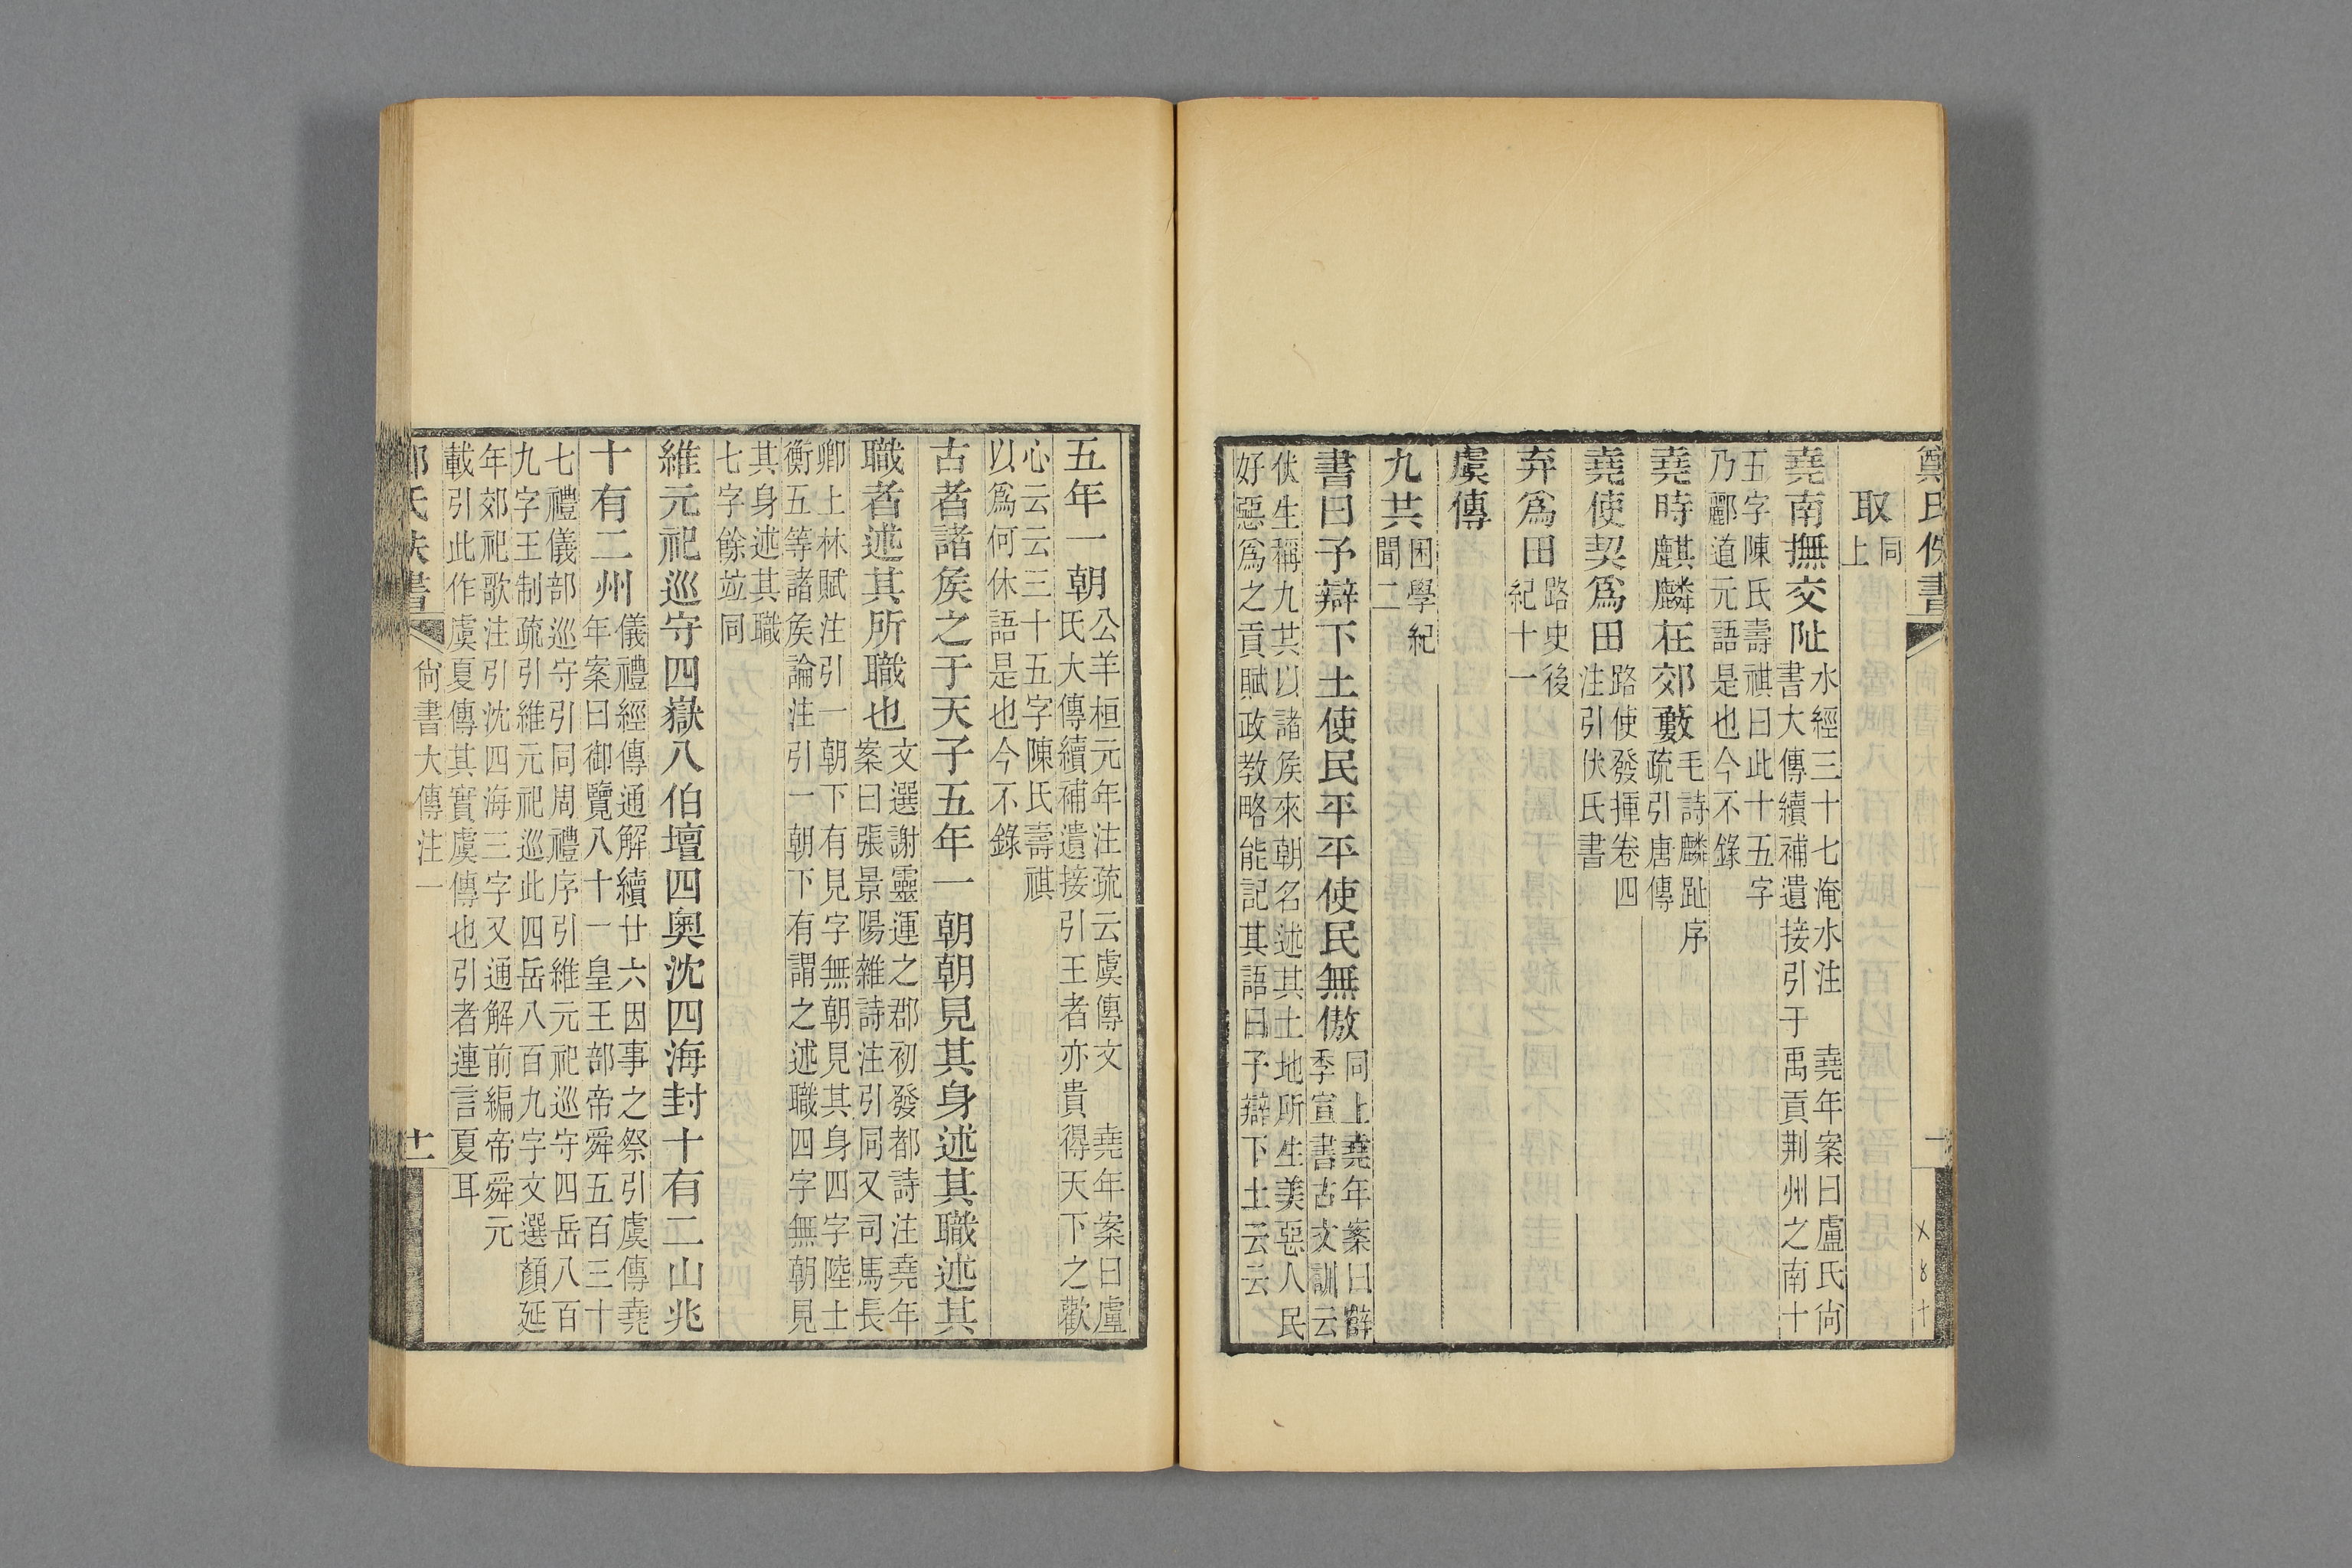 鄭氏佚書
取同上
堯南撫交阯水經三十七淹水注　堯年案曰盧氏尙
書大傳續補遺接引于禹貢荆州之南十
五字陳氏壽祺曰此十五字
乃酈道元語是也今不錄
堯時麒麟在郊藪毛詩麟趾序
疏引唐傳
堯使契爲田路使發揮卷四
注引伏氏書
弃爲田路史後
紀十一
虞傳
九共困學紀
聞二
書曰予辯下土使民平平使民無傲同上堯年案曰薛
季宣書古文訓云
伏生稱九共以諸矦來朝名述其土地所生美惡人民
好惡爲之貢賦政教略能記其語曰予辯下土云云
五年一朝公羊桓元年注疏云虞傳文　堯年案曰盧
氏大傳續補遺接引王者亦貴得天下之歡
心云云三十五字陳氏壽祺
以爲何休語是也今不錄
古者諸矦之于天子五年一朝朝見其身述其職述其
職者述其所職也文選謝靈運之郡初發都詩注堯年
案曰張景陽雜詩注引同又司馬長
卿上林賦注引一朝下有見字無朝見其身四字陸士
衡五等諸矦論注引一朝下有謂之述職四字無朝見
其身述其職
七字餘竝同
維元祀巡守四嶽八伯壇四奧沈四海封十有二山兆
十有二州儀禮經傳通解續廿六因事之祭引虞傳堯
年案曰御覽八十一皇王部帝舜五百三十
七禮儀部巡守引同周禮序引維元祀巡守四岳八百
九字王制疏引維元祀巡此四岳八百九字文選顏延
年郊祀歌注引沈四海三字又通解前編帝舜元
載引此作虞夏傳其實虞傳也引者連言夏耳
氏佚書
尙書大傳注一
十一